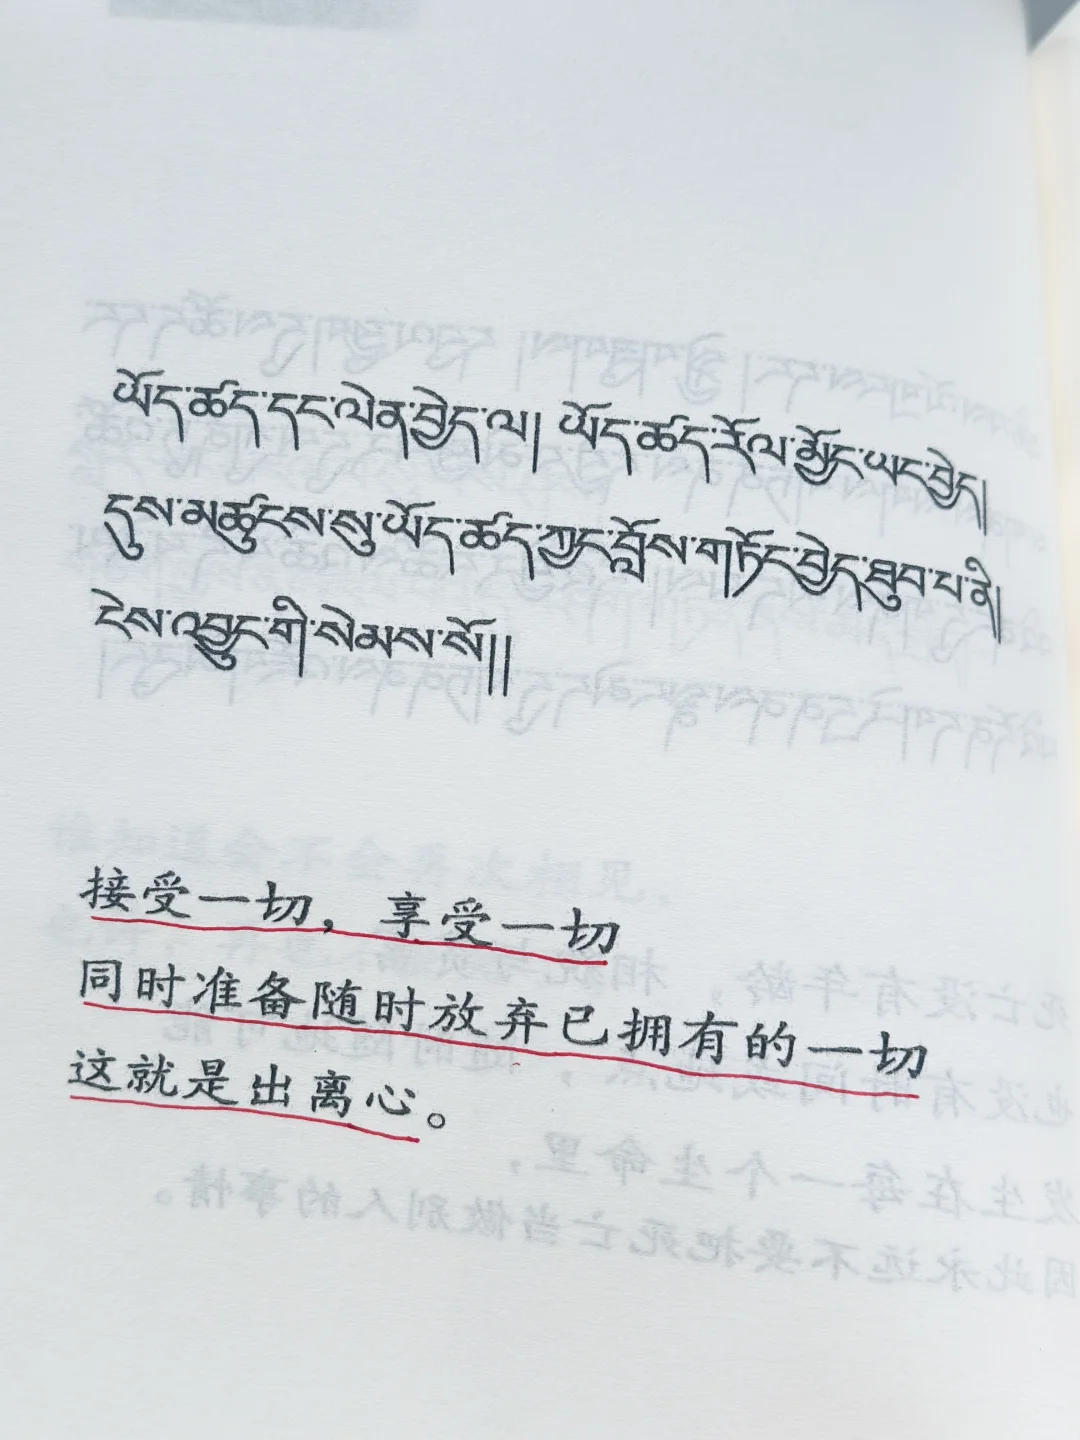 ཡོད་ཚད་དང་ལེན་བྱེད་ལ། ཡོད་ཚད་རོལ་མྱོང་ཡང་བྱེད།
དུས་མཚུངས་སུ་ཡོད་ཚད་ཀྱང་བློས་གཏོང་བྱེད་ཐུབ་པ་ནི།
ངེས་འབྱུང་གི་སེམས་སོ།།
接受一切，享受一切
同时准备随时放弃已拥有的一切
这就是出离心。